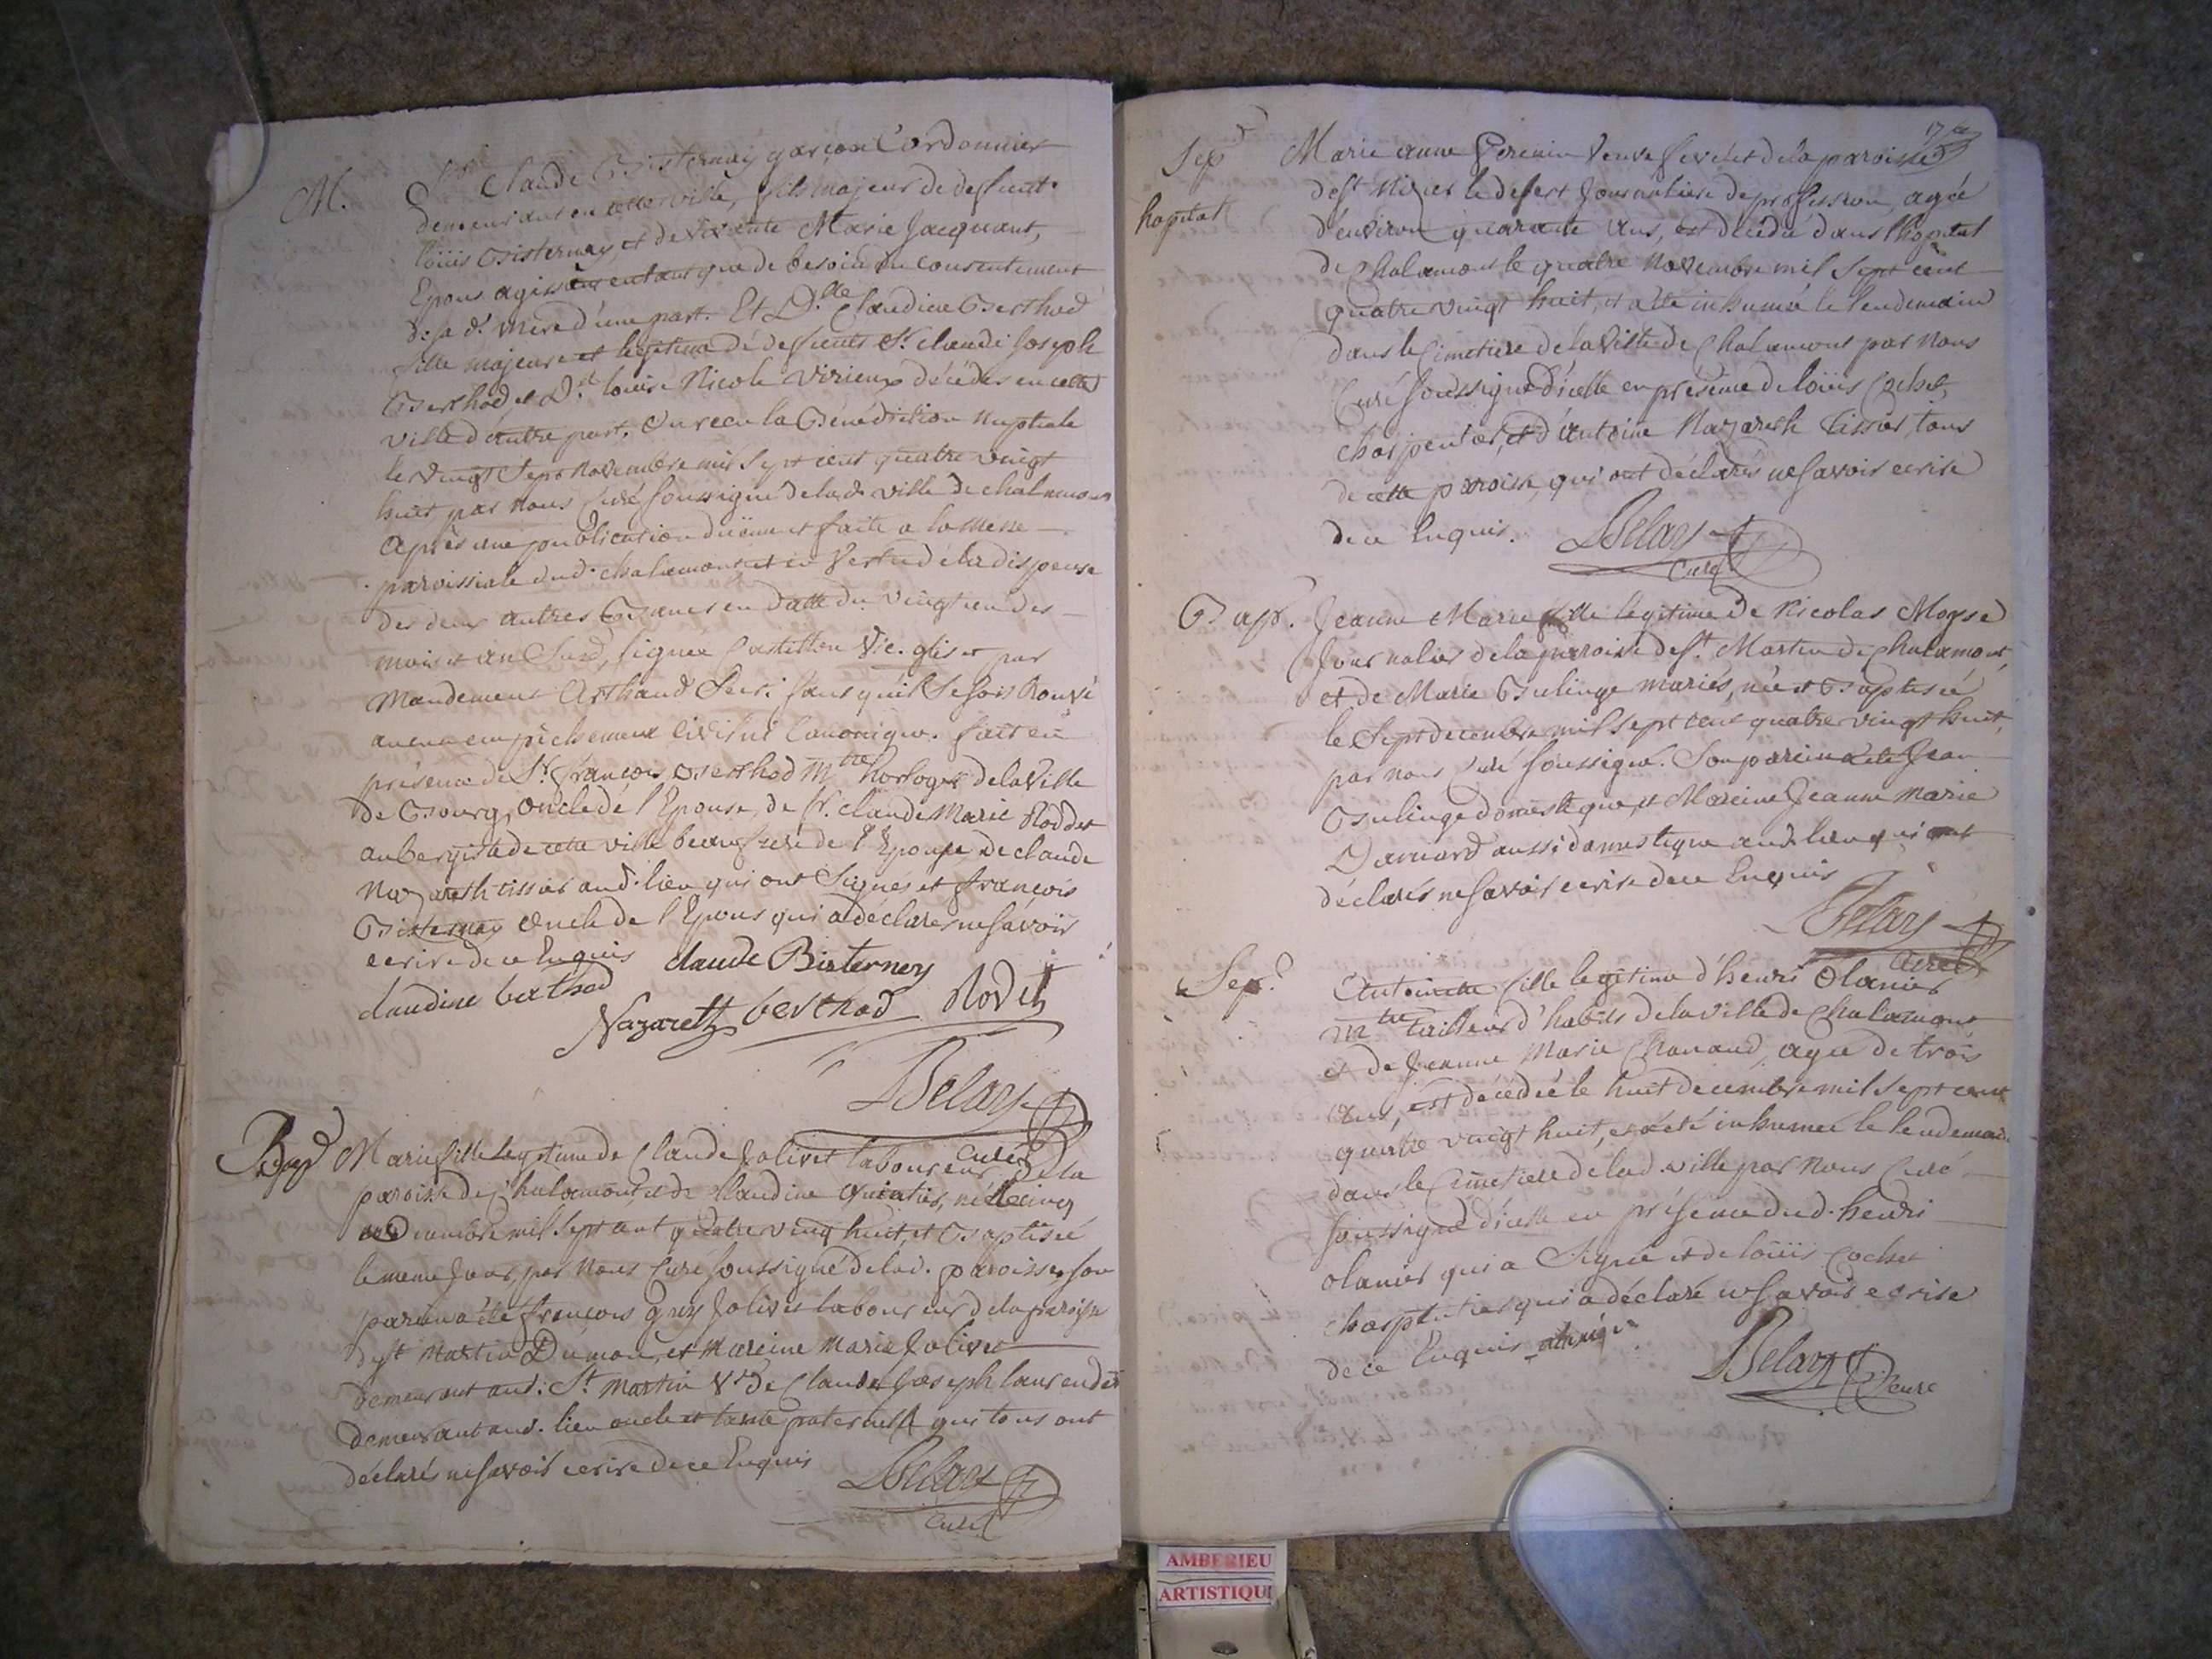 M.
Sr. Claude Bisterney garçon Cordonnier
demeurant en cette ville, fils majeur de deffunt
loüis Bisterney, et de vivante Marie Jacquant,
Epoux agissant entant que de besoin du consentement
de sa d. mere d'une part. Et D.lle Claudine Berthod
fille majeure et legitime de deffunts Sr. claude Joseph
Berthod et D.e louise Nicole Virieux décédés en cette
ville d'autre part, ont recu la Bénédiction nuptiale
le vingt Sept novembre mil Sept cent quatre vingt
huit par nous Curé soussigné de lad. ville de chalamont
après une publication duëment faite a la Messe
paroissiale dud. chalamont et en vertu de la dispense
des deux autres Bancs en datte du vingt un des
mois et an Susd, signée Castellon Vic. glis et par
Mandement Arthaud Secr. sans qu'il se soit trouvé
aucun empêchement civil ni Canonique. fait en
présence de Sr. françois Berthod Mtre horloger de la ville
de Bourg, oncle de l'Epouse, de Sr. claude Marie Roddet
aubergiste de cette ville beaufrere de l'Epouse, de claude
Nazareth tissier aud. lieu qui ont Signés et françois
Bisterney oncle de l'Epoux qui a déclaré ne savoir
ecrire de ce Enquis claude Bisterney
claudine berthod
Nazareth berthod Rodet
Belay
curé
Bap. Marie fille legitime de Claude Jolivet laboureur de la
paroisse de chalamont, et de Claudine Quintier, née le cinq
decembre mil Sept cent quatre vingt huit, et Baptisée
le meme Jour, par nous Curé soussigné de lad. paroisse, son
parein a été françois Jolivet laboureur de la paroisse
de St Martin Dumon, et Mareine Marie Jolivet
demeurant aud. St. Martin Ve de Claude Joseph laurendet
demeurant aud. lieu oncle et tante paternels qui tous ont
déclarés ne savoir ecrire de ce Enquis Belay
curé
17
Sep.
hopital
Marie anne veuve de la paroisse
de St Nizier le desert Journaliere de profession, agée
d'environ quarante ans, est décédée dans l'hopital
de Chalamont le quatre Novembre mil Sept cent
quatre vingt huit, et a été inhumée le lendemain
dans le Cimetiere de la ville de Chalamont par nous
Curé soussigné d'icelle en présence de loüis Cochet,
charpentier, et d'Antoine Nazareth tissier, tous
de cette paroisse, qui ont déclarés ne savoir ecrire
de ce Enquis. Belay
Curé
Bap. Jeanne Marie fille legitime de Nicolas Moyse
Journalier de la paroisse de St. Martin de Chalamont,
et de Marie Bulinge mariés, née et Baptisée
le Sept decembre mil sept cent quatre vingt huit,
par nous Curé soussigné. Son parein a été Jean
Bulinge domestique, et Mareine Jeanne Marie
Damard aussi domestique aud. lieu qui ont
déclarés ne savoir ecrire de ce Enquis
Belay
curé
Sep. Antoinette fille legitime d'henri Olanier
Mtre tailleur d'habits de la ville de Chalamont
et de Jeanne Marie Chanaud, agée de trois
ans, est décédée le huit decembre mil Sept cent
quatre vingt huit, et a été inhumée le lendemain
dans le Cimetiere de lad. ville par nous Curé
soussigné d'icelle en présence dud. henri
olanier qui a Signé et de loüis Cochet
charpentier qui a déclaré ne savoir ecrire
de ce Enquis olanier
Belay
curé
AMBERIEU
ARTISTIQU